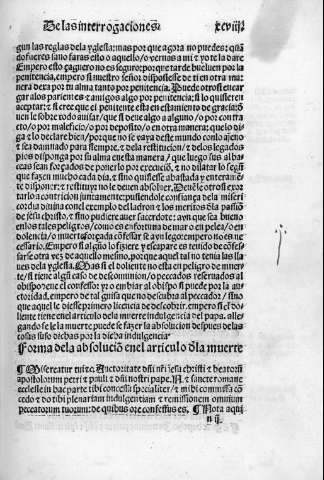 De las interrogaciones. xcviij.
gun las reglas dela yglesia: mas por que agora no puedes: quã
do fueres sano haras esto o aquello/o vernas a mi ⁊ yo te la dare
Empero esto çaguero no es seguro: porque tarde bueluen por la
penitencia. empero si nuestro señor dispossiesse de ti en otra ma⸗
nera dexa por tu alma tanto por penitencia. Puede otrosi encar
gar alos parientes ⁊ amigos algo por penitencia: si lo quisieren
aceptar: ⁊ si cree que el penitente esta en estamiento de gracia: si
uen le sobre todo auisar/que si deue algo a alguno/o por con tra
cto/o por maleficio/o por deposito/o en otra manera: que lo di
ga ⁊ lo declare bien/porque no se vaya deste mundo conlo ajeno
⁊ sea damnado para siempre. ⁊ dela restitucion/⁊ delos legados
pios disponga por su alma en esta manera/que luego sus alba
ceas sean forçados de ponerlo por execuciõ, ⁊ no dilatar lo segun
que fazen mucho cada dia. ⁊ sino quisiesse abastada y enteramẽ
te disponer: ⁊ restituyr no le deuen absoluer. Deuẽle otrosi exor
tarlo a contricion juntamente: pusiendole confiança dela miseri
cordia diuina con el exemplo del ladron ⁊ los meritos dla passiõ
de jesu christo. ⁊ sino pudiere auer sacerdote: avn que sea bueno
en los tales peligros/como es en fortuna de mar o en pelea/o en
dolencia/o muerte forçada cõfessar se a vn lego: empero no es ne
cessario. Empero si algũo lo fiziere y escapare es tenido de cõfes⸗
sarse otra vez de aquello mesmo, por que aquel tal no tenia las lla
ues dela yglesia. Mas si el doliente no esta en peligro de muer
te/si tiene algũ caso de descomunion/o peccados reseruados al
obispo: ene el confessor yr o embiar al obispo si puede por la au
ctoridad. empero de tal guisa que no descubra al peccador/sino
que aquel le diesse primero licencia de descobrir. empero si el do
liente tiene en el articulo dela muerte indulgencia del papa. alle⸗
gando se le la muerte, puede se fazer la absolucion despues delas
cosas suso dichas por la dicha indulgencia
Forma dela absoluciõ en el articulo dla muerte
¶ Misereatur tui ⁊c. Auctoritate dñi nr̃i jesu christi ⁊ beatorũ
apostolorum petri ⁊ pauli ⁊ dñi nostri pape. N. ⁊ sancte romane
ecclesie in hac parte tibi concessa specialiter/⁊ mihi commissa cõ
cedo ⁊ do tibi plenariam indulgentiam ⁊ remissionem omnium
peccatorum tuorum: de quibus ore confessus es. ¶ Nota aqui
n ij.